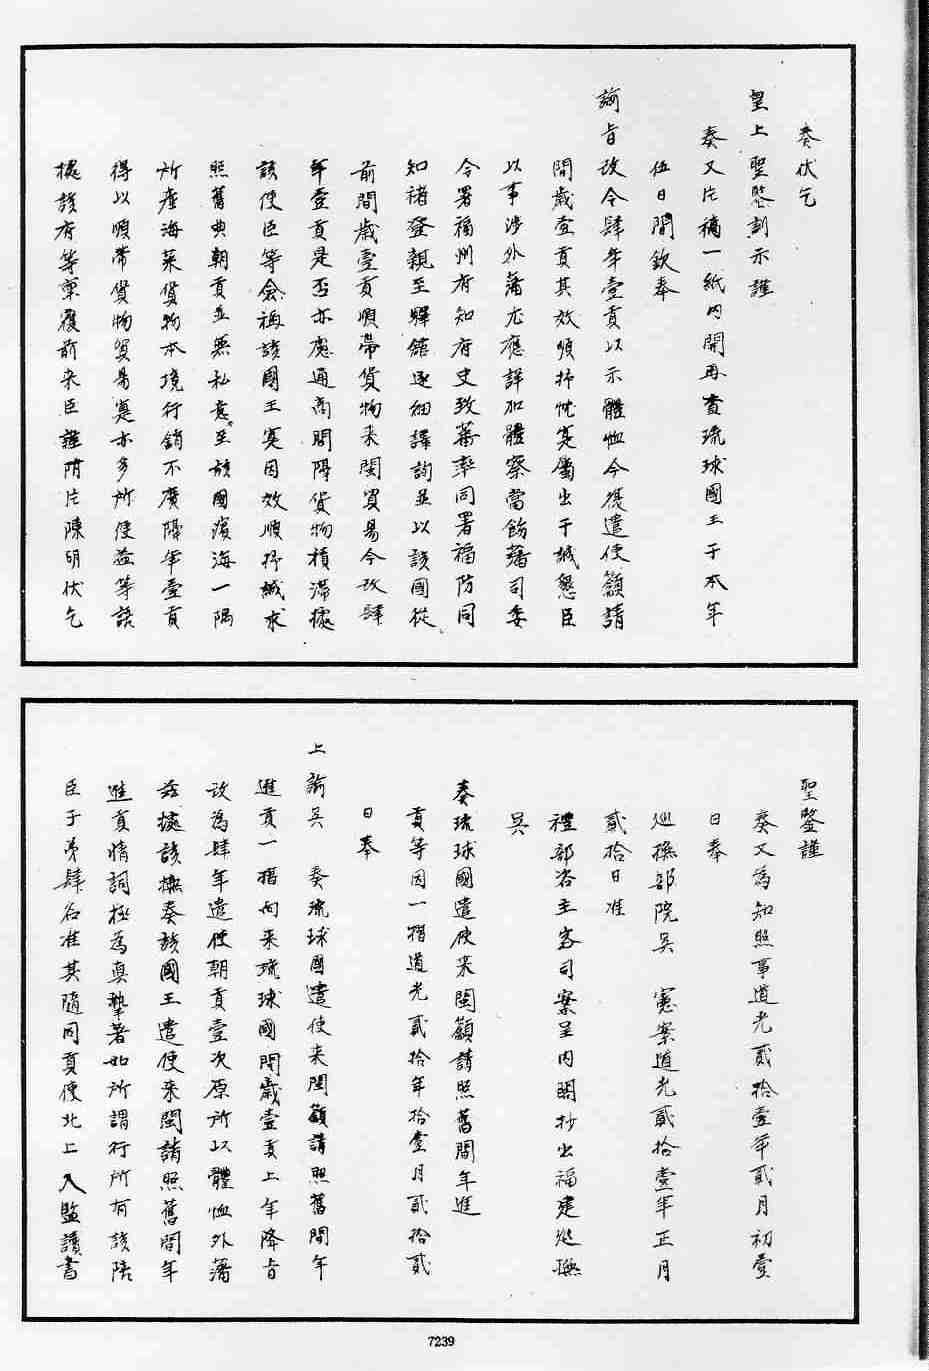 奏伏乞
皇上聖鑒訓示謹
奏又片稿一紙內開再查琉球國王于本年
伍日間欽奉
諭旨改令肆年壹貢以示體恤今復遣使籲請
間歲壹貢其效順抒忱寔屬出于誠懇臣
以事涉外藩尤應詳加體察當飭藩司委
令署福州府知府史致蕃率同署福防同
知褚登親至驛館逐細譯詢並以該國從
前間歲壹貢順帶貨物來閩貿易今改肆
年壹貢是否亦慮通商間隔貨物積滯據
該使臣等僉稱該國王寔因效順抒誠求
照舊典朝貢並無私意至該國濱海一隅
所產海菜貨物本境行銷不廣隔年壹貢
得以順帶貨物貿易寔亦多所便益等語
據該府等稟覆前來臣謹附片陳明伏乞
聖鑒謹
奏又為知照事道光貳拾壹年貳月初壹
日奉
巡撫部院吳 憲案道光貳拾壹年正月
貳拾日准
禮部咨主客司案呈內閣抄出福建巡撫
吳
奏琉球國遣使來閩籲請照舊間年進
貢等因一摺道光貳拾年拾壹月貳拾貳
日奉
上諭吳 奏琉球國遣使來閩籲請照舊間年
進貢一摺向來琉球國間歲壹貢上年降旨
改為肆年遣使朝貢壹次原所以體恤外藩
茲據該撫奏該國王遣使來閩請照舊間年
進貢情詞極為真摯著如所謂行所有該陪
臣子弟肆名准其隨同貢使北上入監讀書
7239